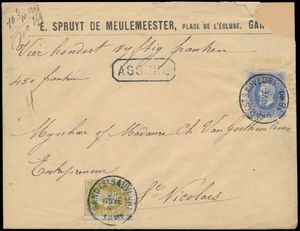 E. SPRUYT DE MEULEMEESTER, PLACE DE L'ÉCLUSE, GAN
Vier hondert vyftig franken
450 franken
ASSURÉ
Mynhar of Madame Ch Van Goethem
Entrepreneur
St Nicolaes
GAND (ST SAUVEUR)